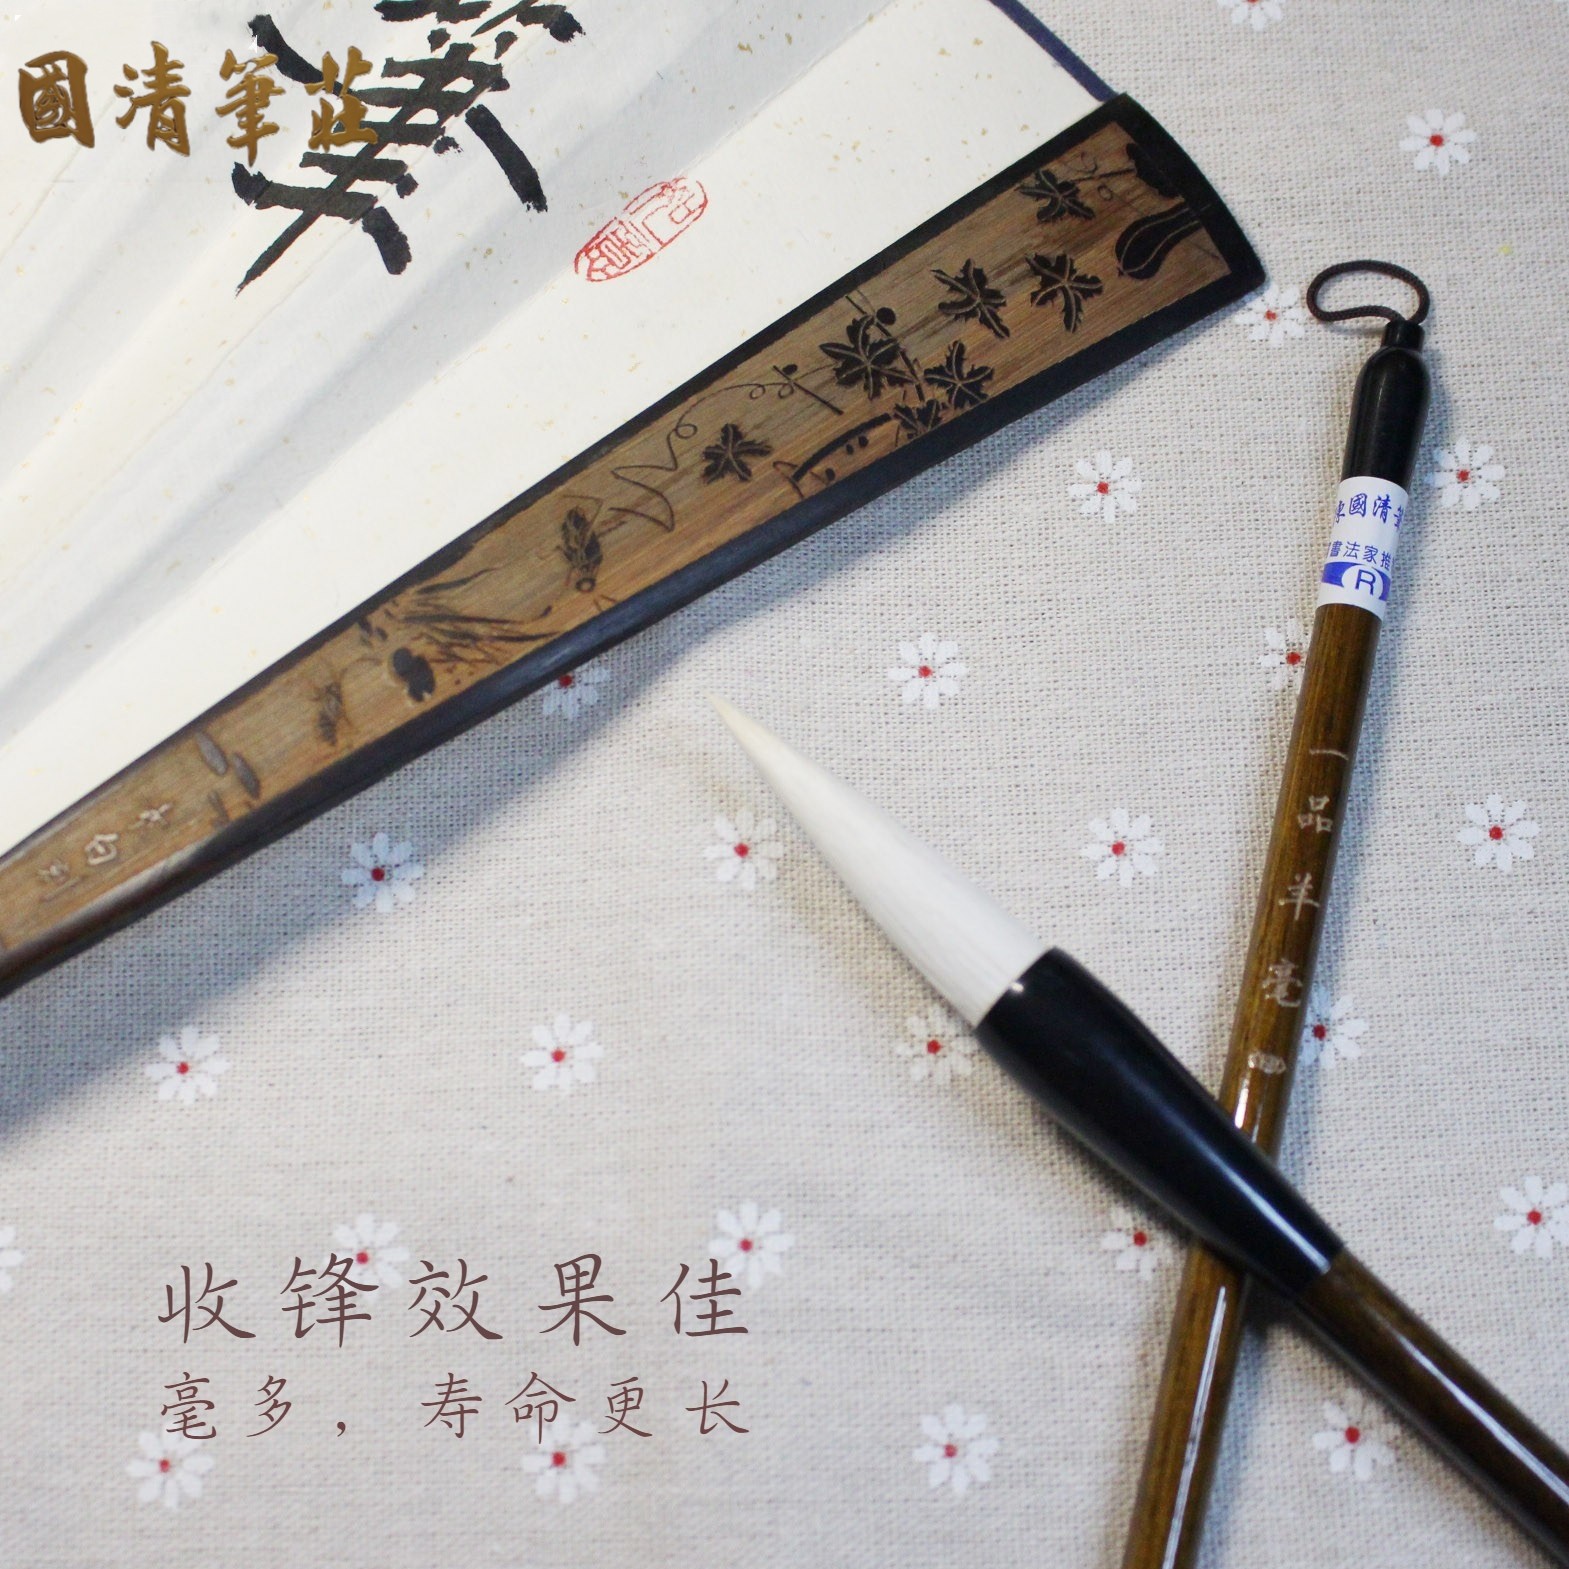 國清筆莊
國清筆
書法家推
R
一品羊毫
收锋效果佳
毫多，寿命更长